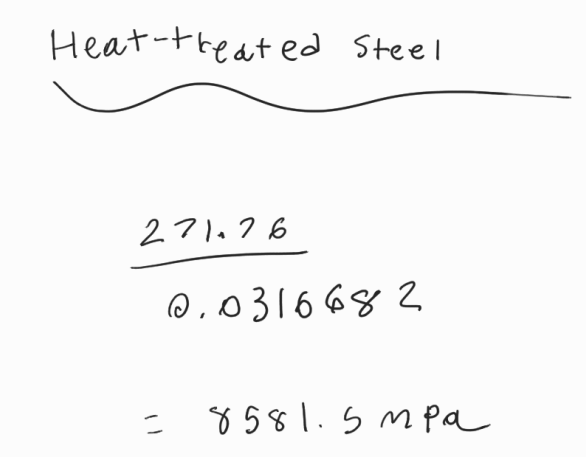 Heat-treated Steel
271.76
0.0316682
= 8581.5 mpa